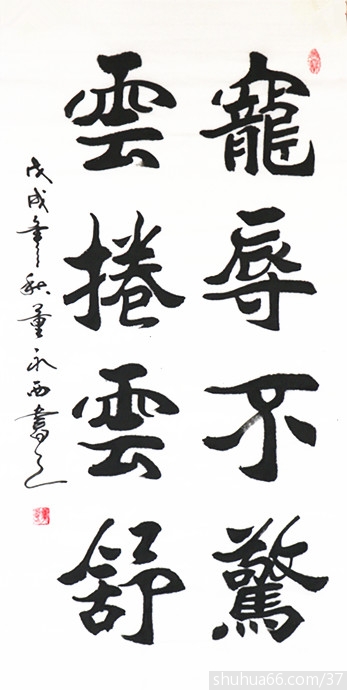 寵辱不驚
雲捲雲舒
戊戌年秋董永西書之
shuhua66.com/37